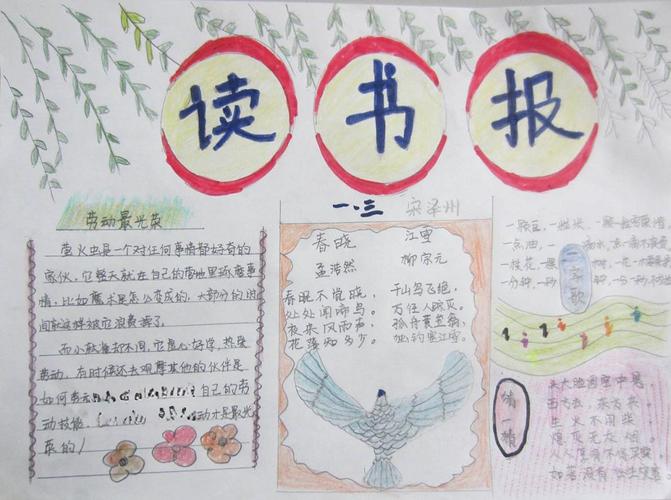 读书报
一.三 宋泽州
劳动最光荣
萤火虫是一个对任何事情都好奇的
家伙,它整天就在自己的营地里琢磨事
情,比如魔术是怎么变成的,大部分的时
间就这样被它浪费掉了。
而小鼹鼠却不同,它虚心好学,热爱
劳动,有时候还去观摩其他的伙伴是
如何劳动 自己的劳
动技能。 动才是最光
荣的!
春晓
孟浩然
春眠不觉晓,
处处闻啼鸟。
夜来风雨声,
花落知多少。
江雪
柳宗元
千山鸟飞绝,
万径人踪灭。
孤舟蓑笠翁,
独钓寒江雪。
一颗豆,一粒米,
一点油,一
一枝花,一
一分钟,一秒
歌
猜一猜
来大路
西方去,东方来
生火不用柴,
熄灭无灰
如若没有